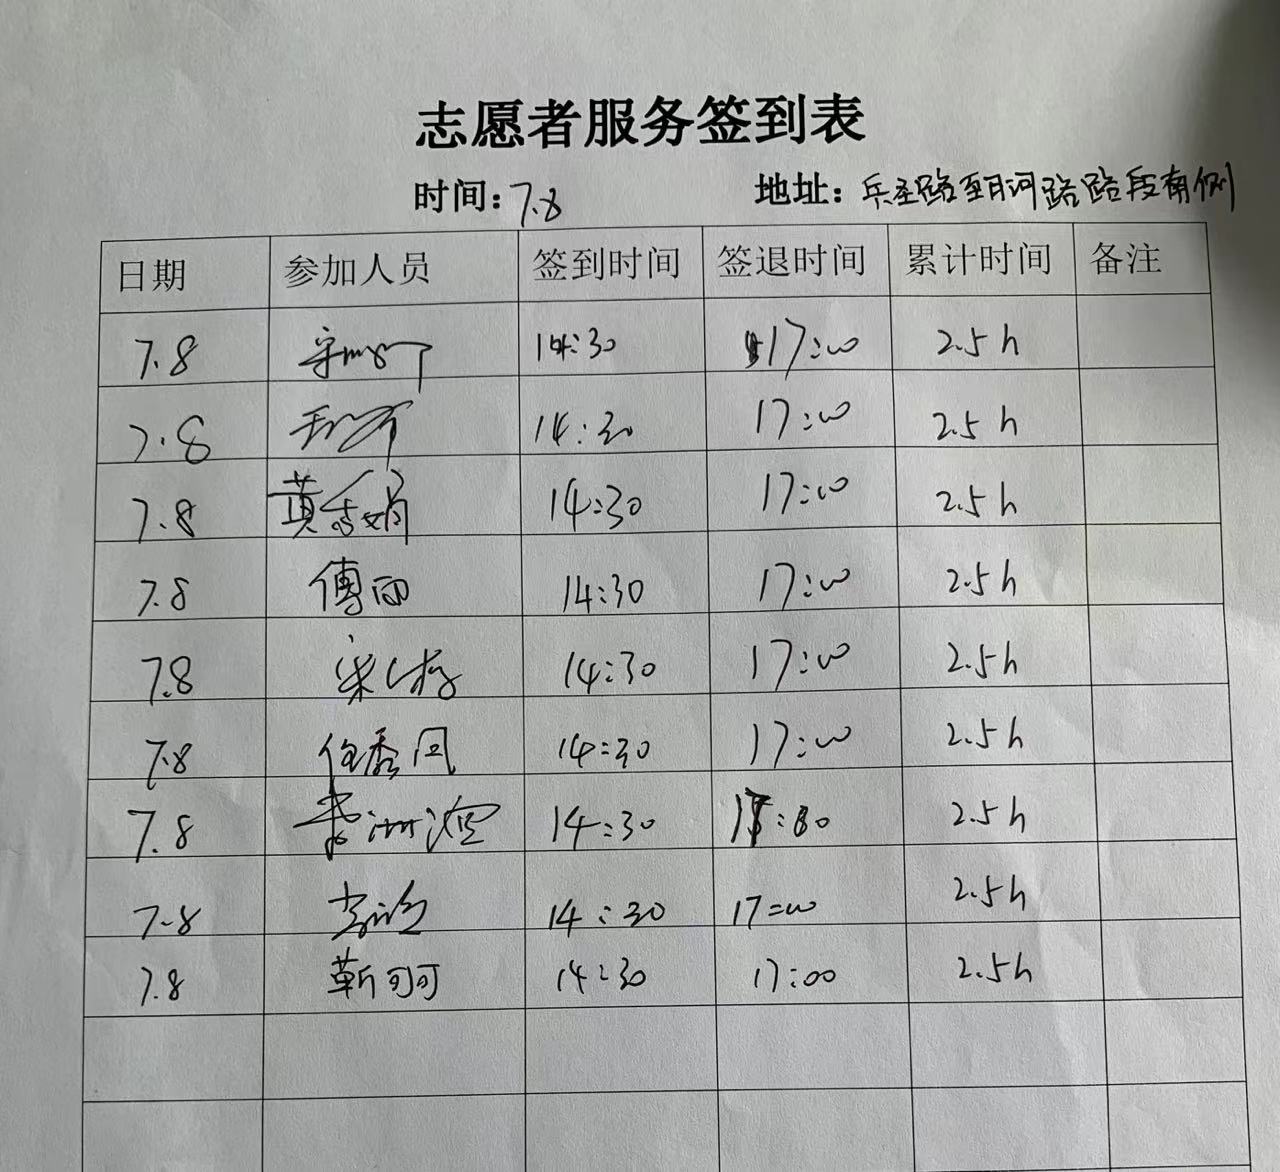 志愿者服务签到表
时间:7.8 地址:兵圣路至月河路路段南侧
日期 参加人员 签到时间 签退时间 累计时间 备注
7.8 14:30 17:00 2.5h
7.8 14:30 17:00 2.5h
7.8 黄秀娟 14:30 17:00 2.5h
7.8 傅丽 14:30 17:00 2.5h
7.8 14:30 17:00 2.5h
7.8 任秀凤 14:30 17:00 2.5h
7.8 14:30 2.5h
7.8 14:30 17:00 2.5h
7.8 靳可可 14:30 17:00 2.5h